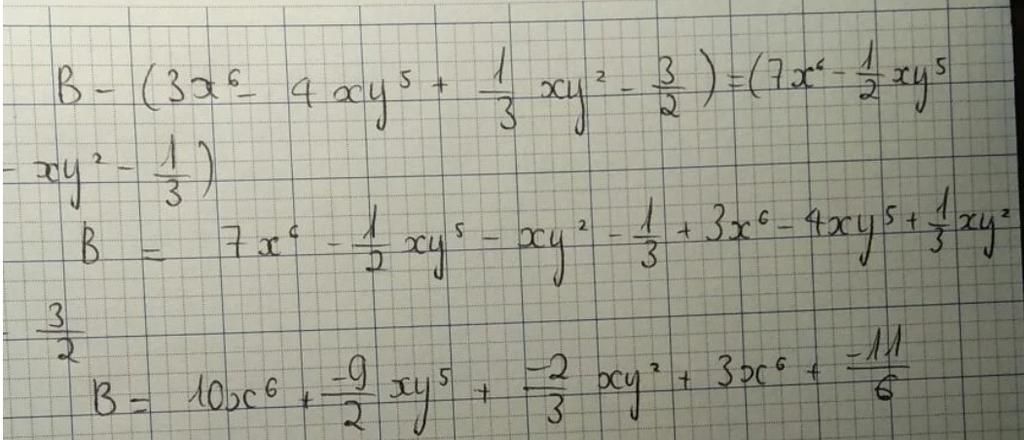 B - (3x⁶ - 4xy⁵ + 1/3 xy² - 3/2) = (7x⁶ - 1/2 xy⁵
- xy² - 1/3)
B = 7x⁶ - 1/2 xy⁵ - xy² - 1/3 + 3x⁶ - 4xy⁵ + 1/3 xy²
- 3/2
B = 10x⁶ + -9/2 xy⁵ + -2/3 xy² + 3x⁶ + -11/6